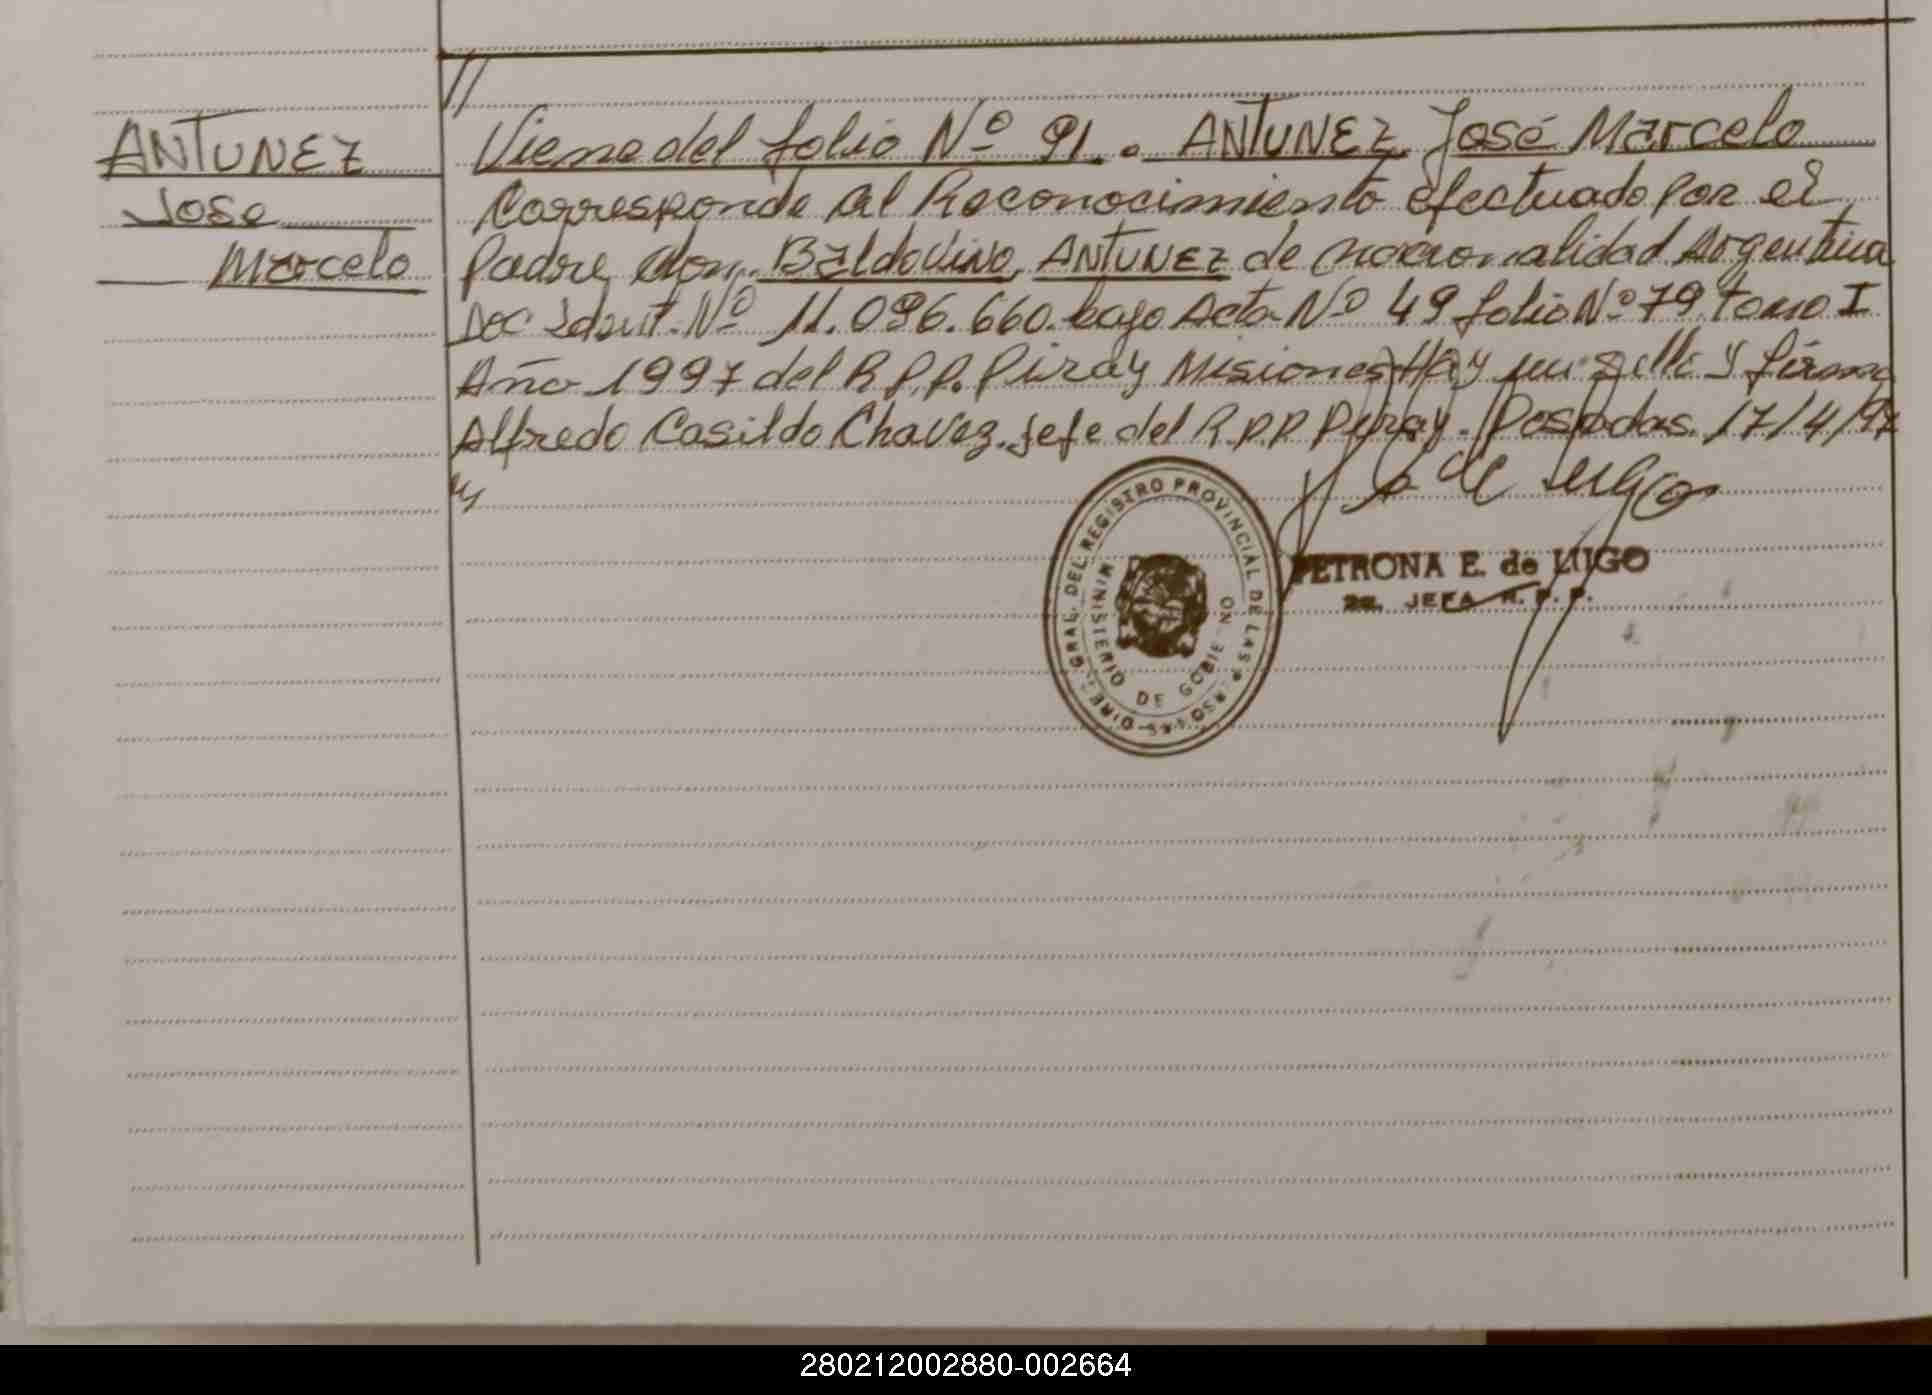 //
ANTUNEZ
Jose
Marcelo
Viene del folio Nº 91. ANTUNEZ José Marcelo
Corresponde al Reconocimiento efectuado por el
Padre don. BALdovino, ANTUNEZ de nacionalidad Argentina
Doc Ident. Nº 11.096.660. bajo Acta Nº 49 folio Nº 79 Tomo I
Año 1997 del R.P.P. Piray Misiones Hay un sello y firma
Alfredo Casildo Chavez. Jefe del R.P.P Piray. Posadas. 17/4/97
de Lugo
PETRONA E. de LUGO
2a. JEFA R. P. P.
DIREC. GRAL. DEL REGISTRO PROVINCIAL DE LAS PERSONAS
MINISTERIO DE GOBIERNO
280212002880-002664